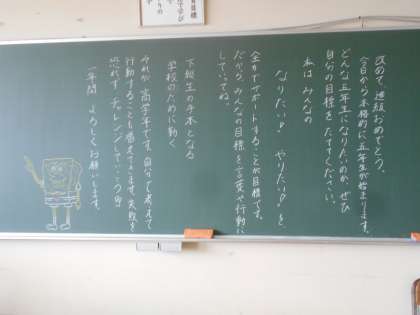 改めて、進級おめでとう。
今日から本格的に五年生が始まります。
どんな五年生になりたいのか、ぜひ
自分の目標を たててください。
私は みんなの
なりたい! やりたい! を
全力でサポートすることが目標です。
だから、みんなの目標を言葉や行動に
していってね。
下級生の手本となる
学校のために動く
それが 高学年です。自分で考えて
行動することも増えてきます。失敗を
恐れず チャレンジしていこう
一年間 よろしくお願いします。